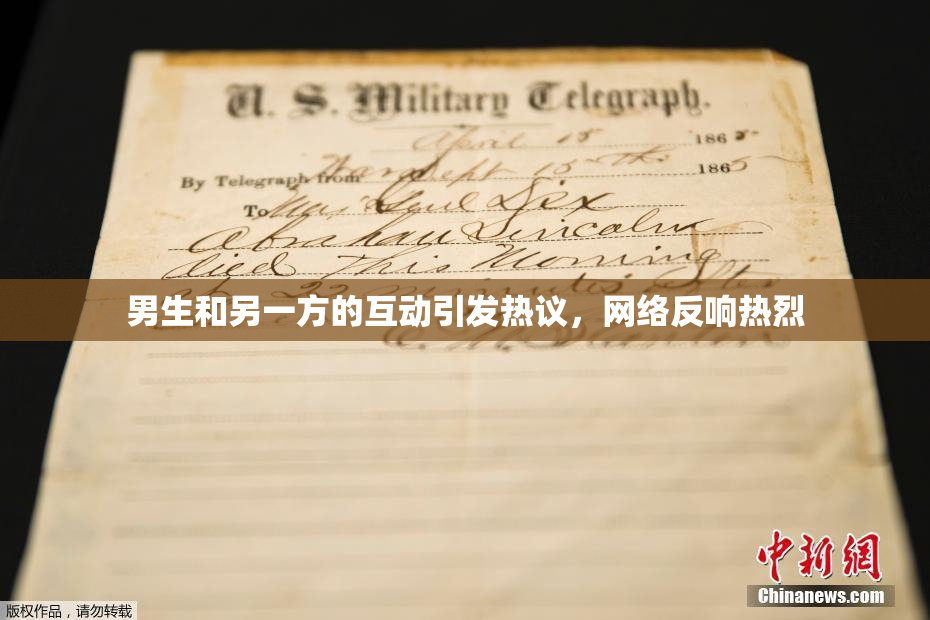 U. S. Military Telegraph.
April 15 1865
By Telegraph from War Dept 15th 1865
To Maj Genl Dix
Abraham Lincoln
died This Morning
at 22 minutes after
男生和另一方的互动引发热议，网络反响热烈
E. M. Stanton
中新网
Chinanews.com
版权作品，请勿转载